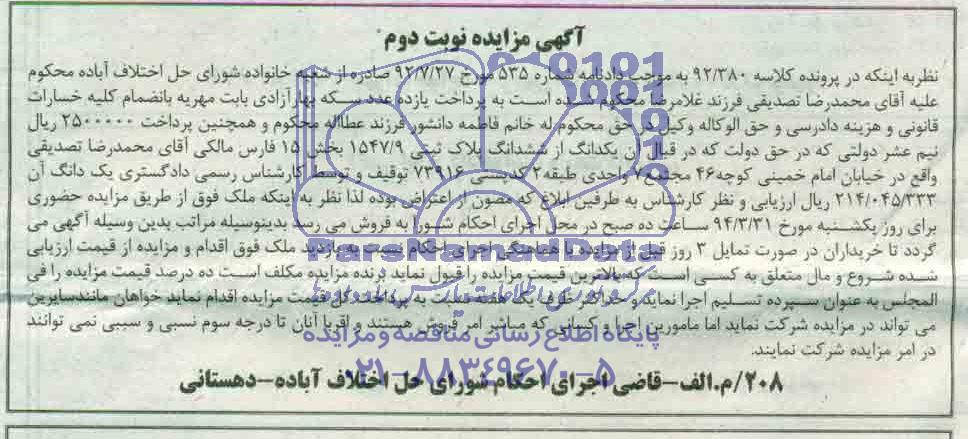 آگهی مزایده نوبت دوم
نظربه اینکه در پرونده کلاسه ۹۲/۳۸۰ به موجب دادنامه شماره ۵۳۵ مورخ ۹۲/۷/۲۷ صادره از شعبه خانواده شورای حل اختلاف آباده محکوم
علیه آقای محمدرضا تصدیقی فرزند غلامرضا محکوم شده است به پرداخت یازده عدد سکه بهارآزادی بابت مهریه بانضمام کلیه خسارات
قانونی و هزینه دادرسی و حق الوکاله وکیل در حق محکوم له خانم فاطمه دانشور فرزند عطااله محکوم و همچنین پرداخت ۲۵۰۰۰۰۰ ریال
نیم عشر دولتی که در حق دولت که در قبال آن یکدانگ از ششدانگ پلاک ثبتی ۱۵۴۷/۹ بخش ۱۵ فارس مالکی آقای محمدرضا تصدیقی
واقع در خیابان امام خمینی کوچه۴۶ مجتمع۷ واحدی طبقه۲ کدپستی ۷۳۹۱۶ توقیف و توسط کارشناس رسمی دادگستری یک دانگ آن
۲۱۴/۰۴۵/۳۳۳ ریال ارزیابی و نظر کارشناس به طرفین ابلاغ که مصون از اعتراض بوده لذا نظر به اینکه ملک فوق از طریق مزایده حضوری
برای روز یکشنبه مورخ ۹۴/۳/۳۱ ساعت ده صبح در محل اجرای احکام شورا به فروش می رسد بدینوسیله مراتب بدین وسیله آگهی می
گردد تا خریداران در صورت تمایل ۳ روز قبل از مزایده با هماهنگی اجرای احکام نسبت به بازدید ملک فوق اقدام و مزایده از قیمت ارزیابی
شده شروع و مال متعلق به کسی است که بالاترین قیمت مزایده را قبول نماید برنده مزایده مکلف است ده درصد قیمت مزایده را فی
المجلس به عنوان سپرده تسلیم اجرا نماید و حداکثر ظرف یک هفته نسبت به پرداخت کل قیمت مزایده اقدام نماید خواهان مانندسایرین
می تواند در مزایده شرکت نماید اما مامورین اجرا و کسانی که مباشر امر فروش هستند و اقربا آنان تا درجه سوم نسبی و سببی نمی توانند
در امر مزایده شرکت نمایند.
۲۰۸/م.الف-قاضی اجرای احکام شورای حل اختلاف آباده-دهستانی
ParsNamadData
پایگاه اطلاع رسانی مناقصه و مزایده
۰۲۱-۸۸۳۴۹۶۷۰-۵